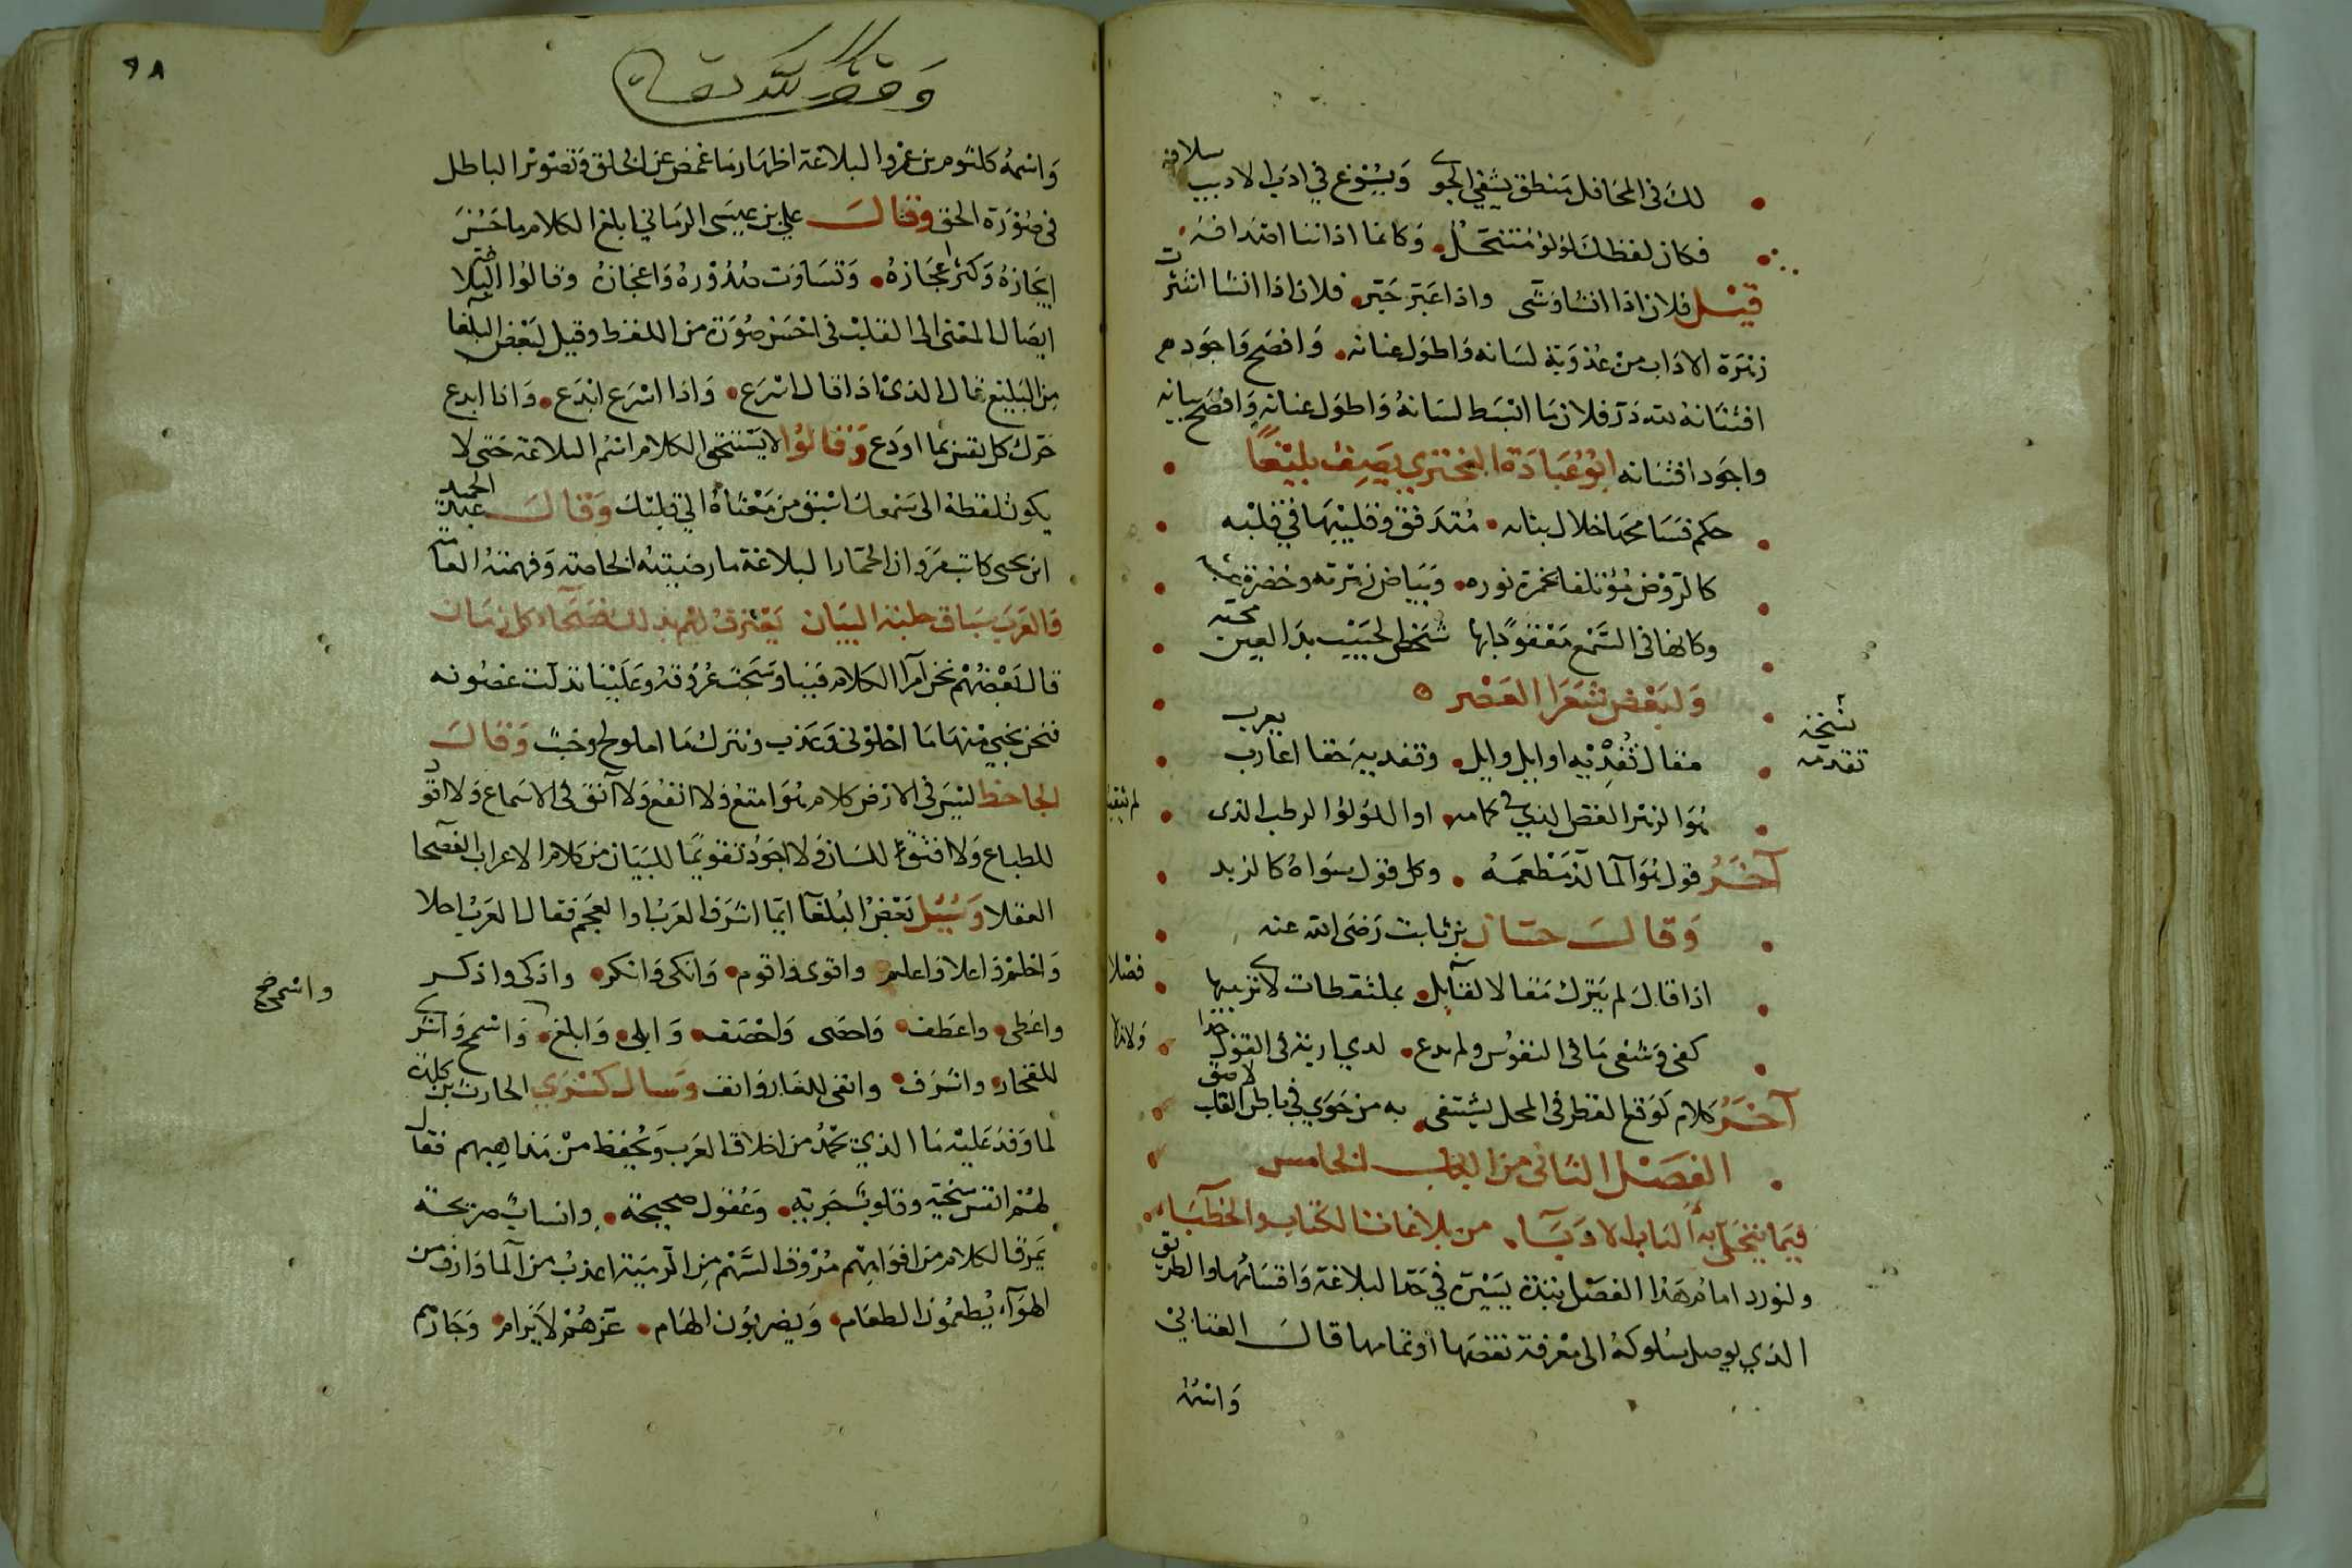 لك في المحافل منطق يشفي الجوى ويسوغ في ادب الاديب سلافه
فكان لفظك لؤلؤ متنخل وكانما اذاننا اصدافه
قيل فلان اذا انشا وشى واذا عبر حبر فلان اذا انشا انتثرت
زهرة الاداب من عذوبة لسانه واطول عنانه وافصح واجود م
افتنانه لله در فلان ما ابسط لسانه واطول عنانه وافصح بيانه
واجود افتنانه ابو عبادة البختري يصف بليغا
حكم فسا محها خلال بنانه متدفق وقليبها في قلبه
كالروض مؤتلفا بحمرة نوره وبياض زهرته وخضرة عشبه
وكانها في السمع معقود بها شخص الحبيب بدا لعين محبه
ولبعض شعرا العصر
نسخة
تقدمه
مقال تفديه اوايل وايل وتفديه حقا اعاريب يعرب
هو الزهر الغض الذي في كمامه او اللؤلؤ الرطب الذي لم يثقب
آخر قول هو الما لذ مطعمه وكل قول سواه كالزبد
وقال حسان بن ثابت رضى الله عنه
اذا قال لم يترك مقالا لقآيل بملتقطات لا ترى بينها فضلا
كفى وشفى ما في النفوس ولم يدع لذي اربة في القول جدا ولا هزلا
آخر كلام كوقع القطر في المحل يشتفى به من جوى في باطن القلب لاصق
الفصل الثاني من الباب الخامس
فيما يتحلى به الباب الادبآء من بلاغات الكتاب والخطبآء
ولنورد امام هذا الفصل نبذة يسيرة في حد البلاغة واقسامها والطريق
الذي يوصل سلوكه الى معرفة نقصها او تمامها قال العتابي
واسمه
٩٨
وقف لله تعالى
واسمه كلثوم بن عمرو البلاغة اظهار ما غمض عن الخلق وتصوير الباطل
في صورة الحق وقال علي بن عيسى الرماني ابلغ الكلام ما حسن
ايجازه وكثر اعجازه وتساوت صدوره واعجازه وقالوا البلاغة
ايصال المعنى الى القلب في احسن صورة من اللفظ وقيل لبعض البلغا
من البليغ قال الذي اذا قال اسرع واذا اسرع ابدع واذا ابدع
حرك كل نفس بما اودع وقالوا لا يستحق الكلام اسم البلاغة حتى لا
يكون لفظه الى سمعك اسبق من معناه الي قلبك وقال عبد الحميد
ابن يحيى كاتب مروان الحمار البلاغة ما رضيته الخاصة وفهمته العامة
فالعرب سباق حلبة البيان يعترف لهم بذلك فصحآء كل زمان
قال بعضهم نحن امرا الكلام فينا وشجت عروقه وعلينا تدلت غصونه
فنحن نجني منها ما احلولى وعذب ونترك ما املولح وخبث وقال
الجاحظ ليس في الارض كلام هو امتع ولا انفع ولا آنق في الاسماع ولا اقود
للطباع ولا افتق للسان ولا اجود تقويما للبيان من كلام الاعراب الفصحا
العقلا وسيل بعض البلغآ ايما اشرف العرب او العجم فقال العرب احلا
واحلم واعلا واعلم واقوى واقوم وانكى وانكر واذكى واذكر
واعطى واعطف واحصى واحصف وابلى وابلغ واسمح واشرى
واسمى صح
للفخار واشرف وانفى للعار وانف وسال كسرى الحارث بن كلدة
لما وفد عليه ما الذي تحمد من اخلاق العرب وتحفظ من مذاهبهم فقال
لهم انفس سخية وقلوب جرية وعقول صحيحة وانساب صريحة
يمرق الكلام من افواههم مروق السهم من الرمية اعذب من المآ وارق من
الهوآء يطعمون الطعام ويضربون الهام عزهم لا يرام وجارهم